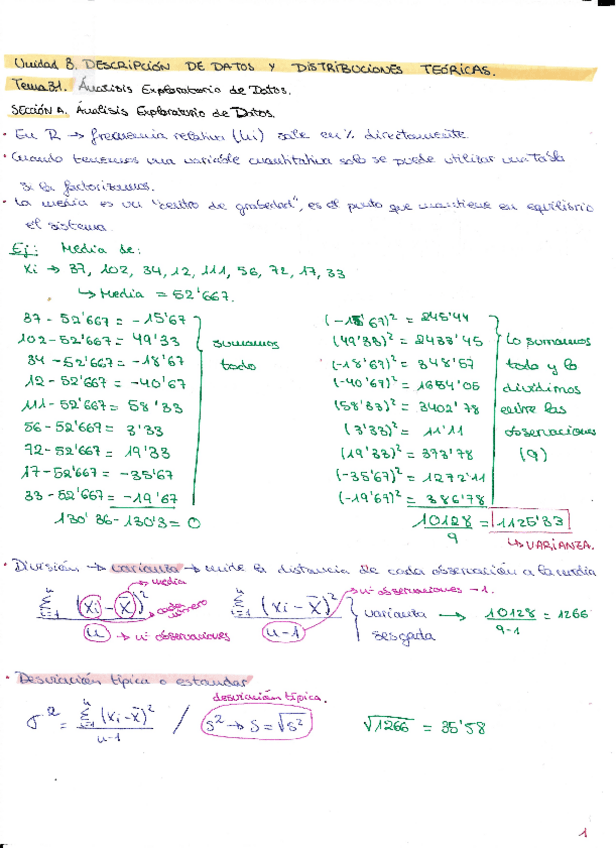 Unidad 3. DESCRIPCIÓN DE DATOS Y DISTRIBUCIONES TEÓRICAS.
Tema 3.1. Análisis Exploratorio de Datos.
SECCIÓN A. Análisis Exploratorio de Datos.
· En R → frecuencia relativa (hi) sale en % directamente.
· Cuando tenemos una variable cuantitativa solo se puede utilizar una tabla
si la factorizamos.
· La media es un "centro de grabedad", es el punto que mantiene en equilibrio
el sistema.
Ej: Media de:
Xi → 37, 102, 34, 12, 111, 56, 72, 17, 33
↳ Media = 52'667.
37 - 52'667 = -15'67
102 - 52'667 = 49'33
34 - 52'667 = -18'67
12 - 52'667 = -40'67
111 - 52'667 = 58'33
56 - 52'667 = 3'33
72 - 52'667 = 19'33
17 - 52'667 = -35'67
33 - 52'667 = -19'67
130'36 - 130'3 = 0
sumamos
todo
(-15'67)² = 245'44
(49'33)² = 2433'45
(-18'67)² = 348'57
(-40'67)² = 1654'05
(58'33)² = 3402'78
(3'33)² = 11'11
(19'33)² = 373'78
(-35'67)² = 1272'11
(-19'67)² = 386'78
10128 / 9 = 1125'33
↳ VARIANZA.
Lo sumamos
todo y lo
dividimos
entre las
observaciones
(9)
· División → varianza → mide la distancia de cada observación a la media
→ media
Σ (xi - x̄)² → cada número
n → nº observaciones
Σ (xi - x̄)²
n - 1 → nº observaciones - 1.
varianza
sesgada
→ 10128 / 9-1 = 1266
· Desviación típica o estandar
desviación típica.
σ² = Σ (xi - x̄)² / n-1 / s² → s = √s²
√1266 = 35'58
1